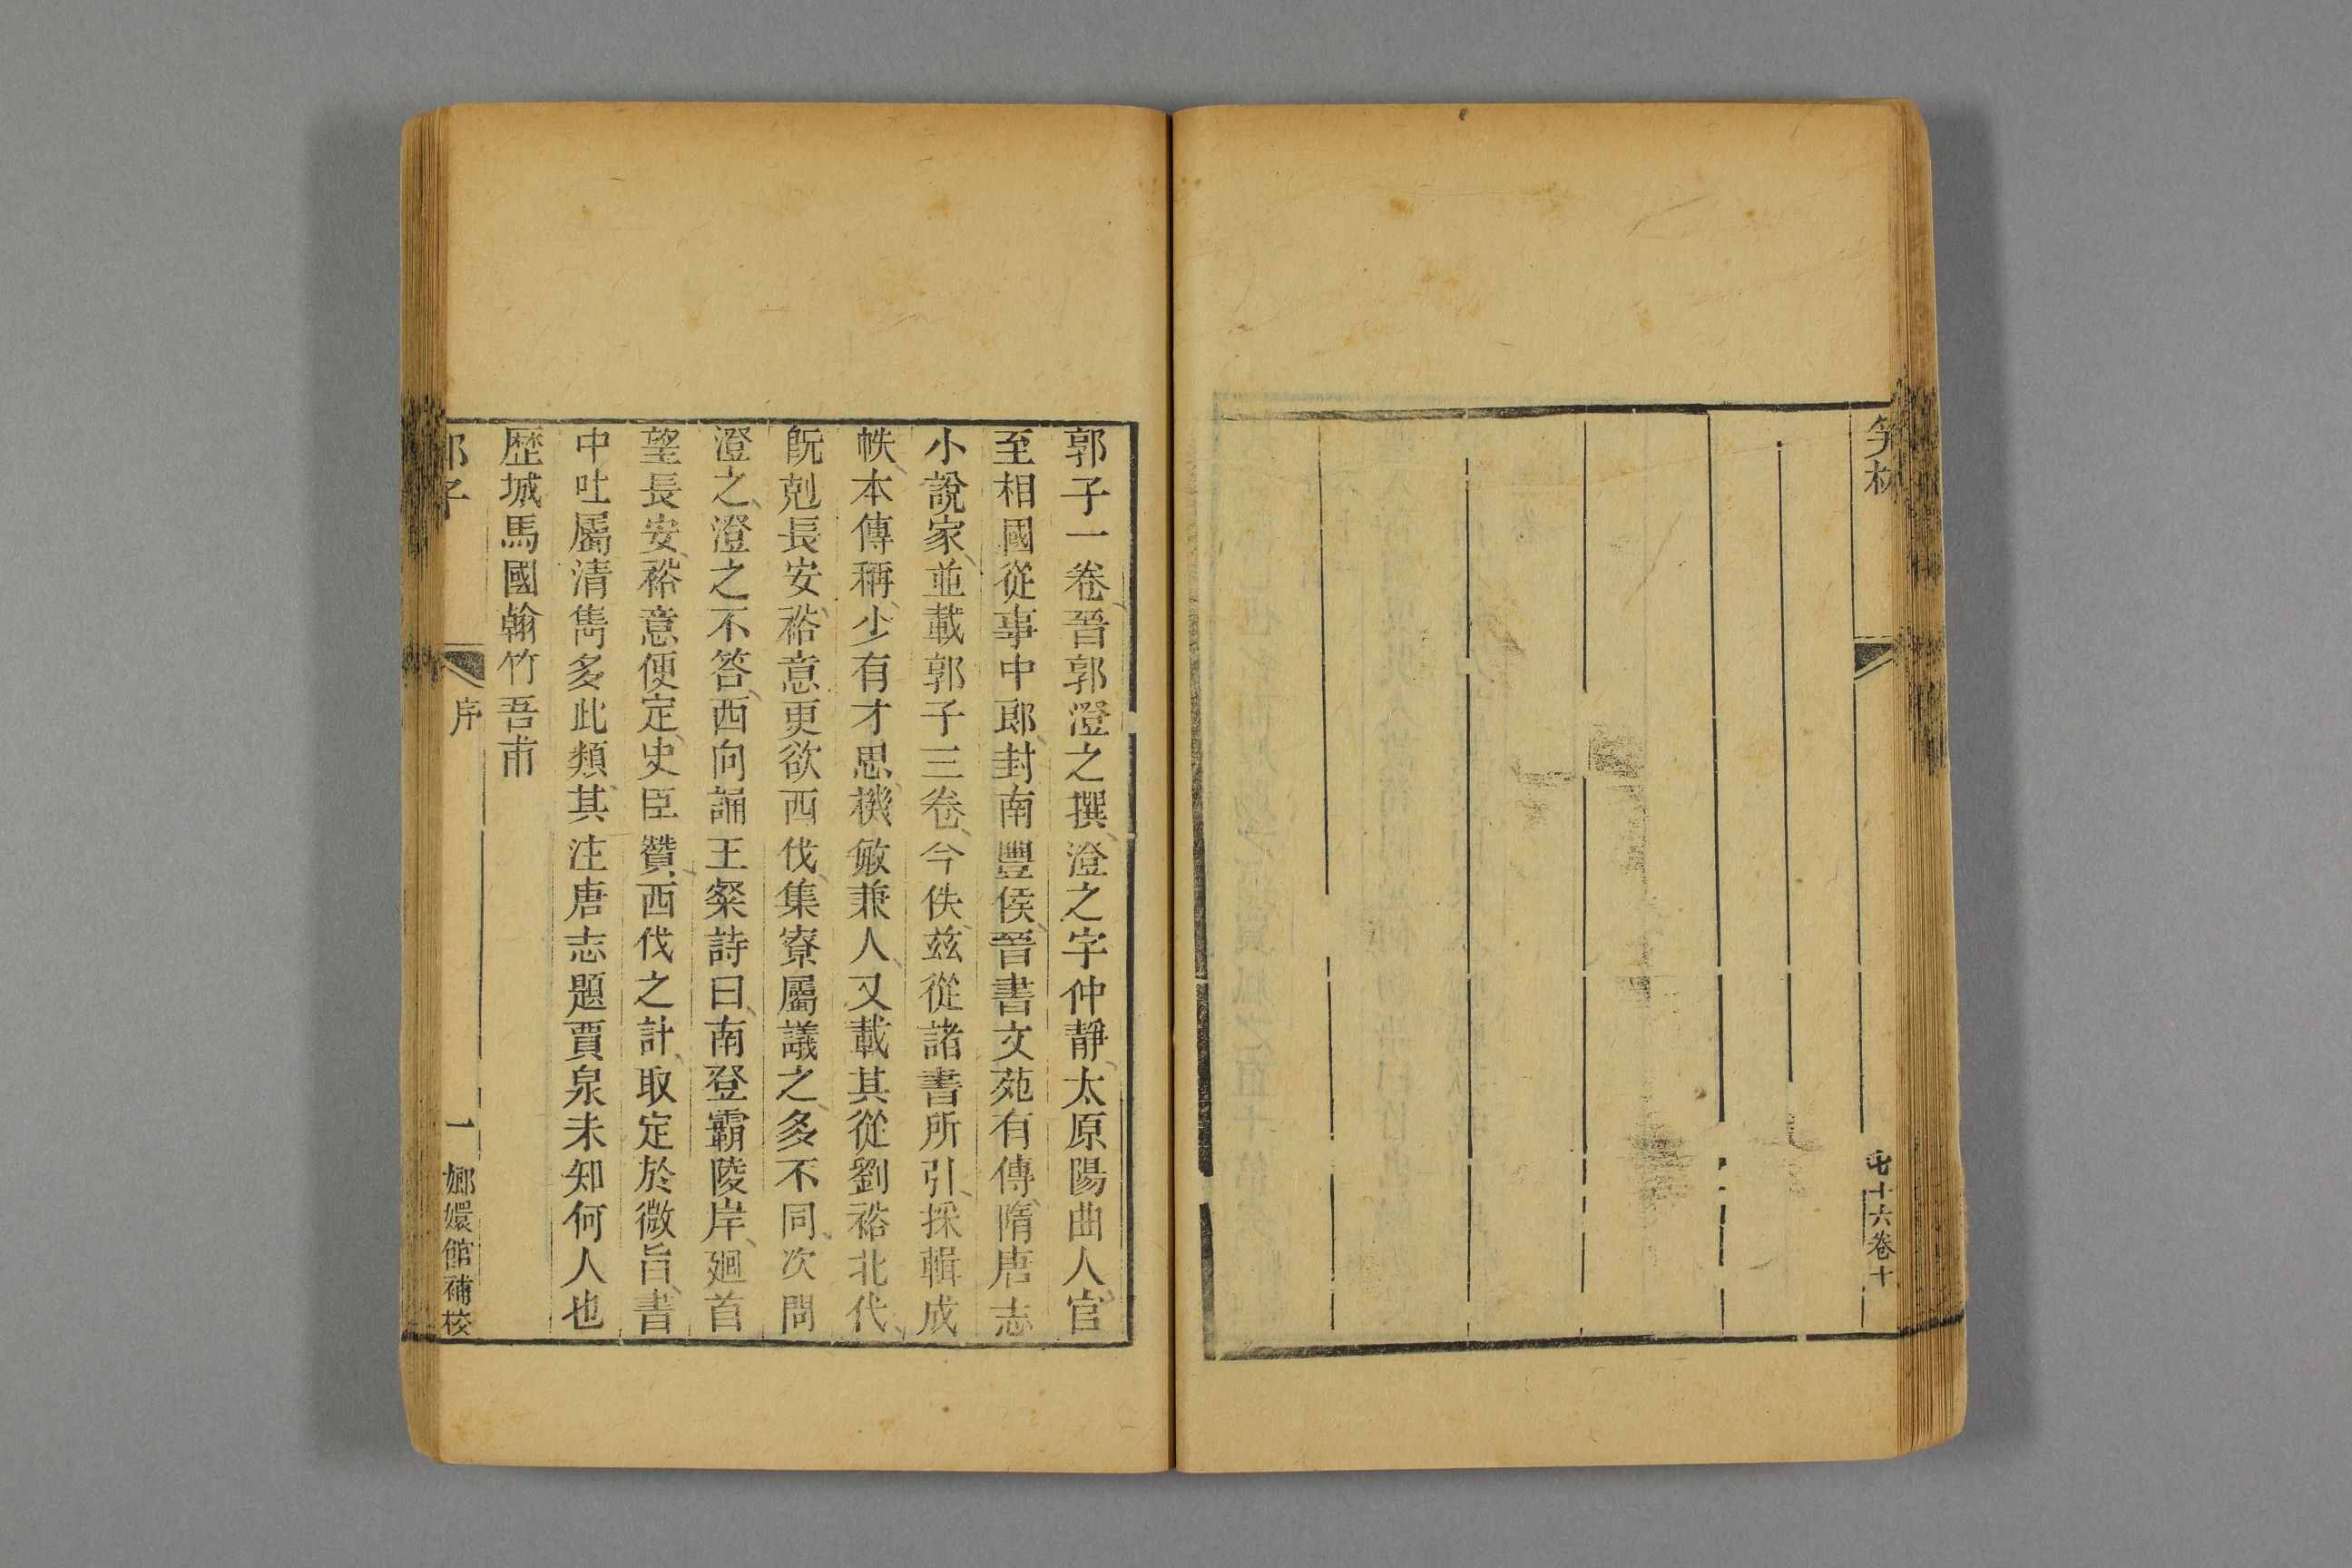 笑林
七十六卷十
郭子一卷晉郭澄之撰澄之字仲靜太原陽曲人官
至相國從事中郎封南豐侯晉書文苑有傳隋唐志
小說家並載郭子三卷今佚茲從諸書所引採輯成
帙本傳稱少有才思機敏兼人又載其從劉裕北伐
旣剋長安裕意更欲西伐集寮屬議之多不同次問
澄之澄之不答西向誦王粲詩曰南登霸陵岸廻首
望長安裕意便定史臣贊西伐之計取定於微旨書
中吐屬清雋多此類其注唐志題賈泉未知何人也
歷城馬國翰竹吾甫
郭子
序
一
嫏嬛館補校